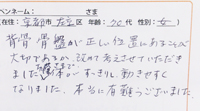 ペンネーム: さま
住所: 京都市左京区 年齢: 70代 性別: 女
背骨骨盤が正しい位置にある事が
大切であるか、改めて考えさせていただき
ました。体がすっきりし動きやすく
なりました。本当に有難うございました。